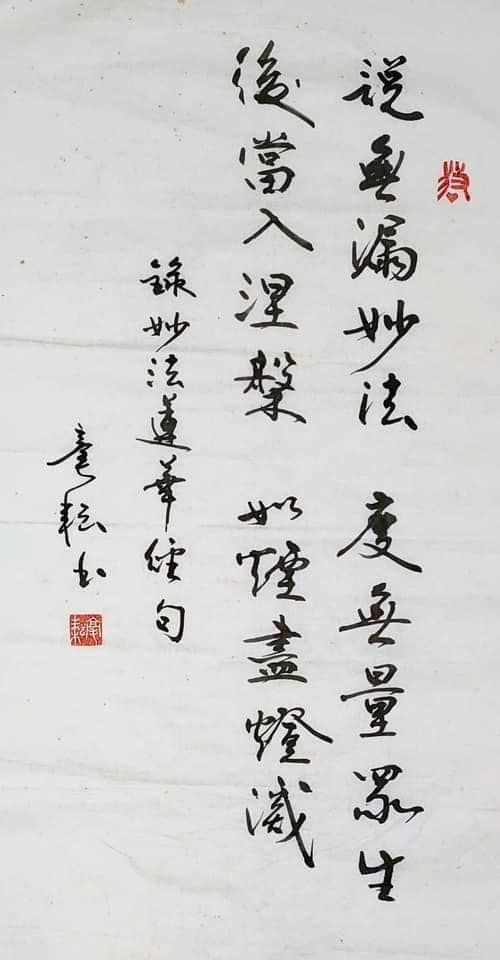 説無漏妙法 度無量眾生
後當入涅槃 如煙盡燈滅
錄妙法蓮華經句
耘書